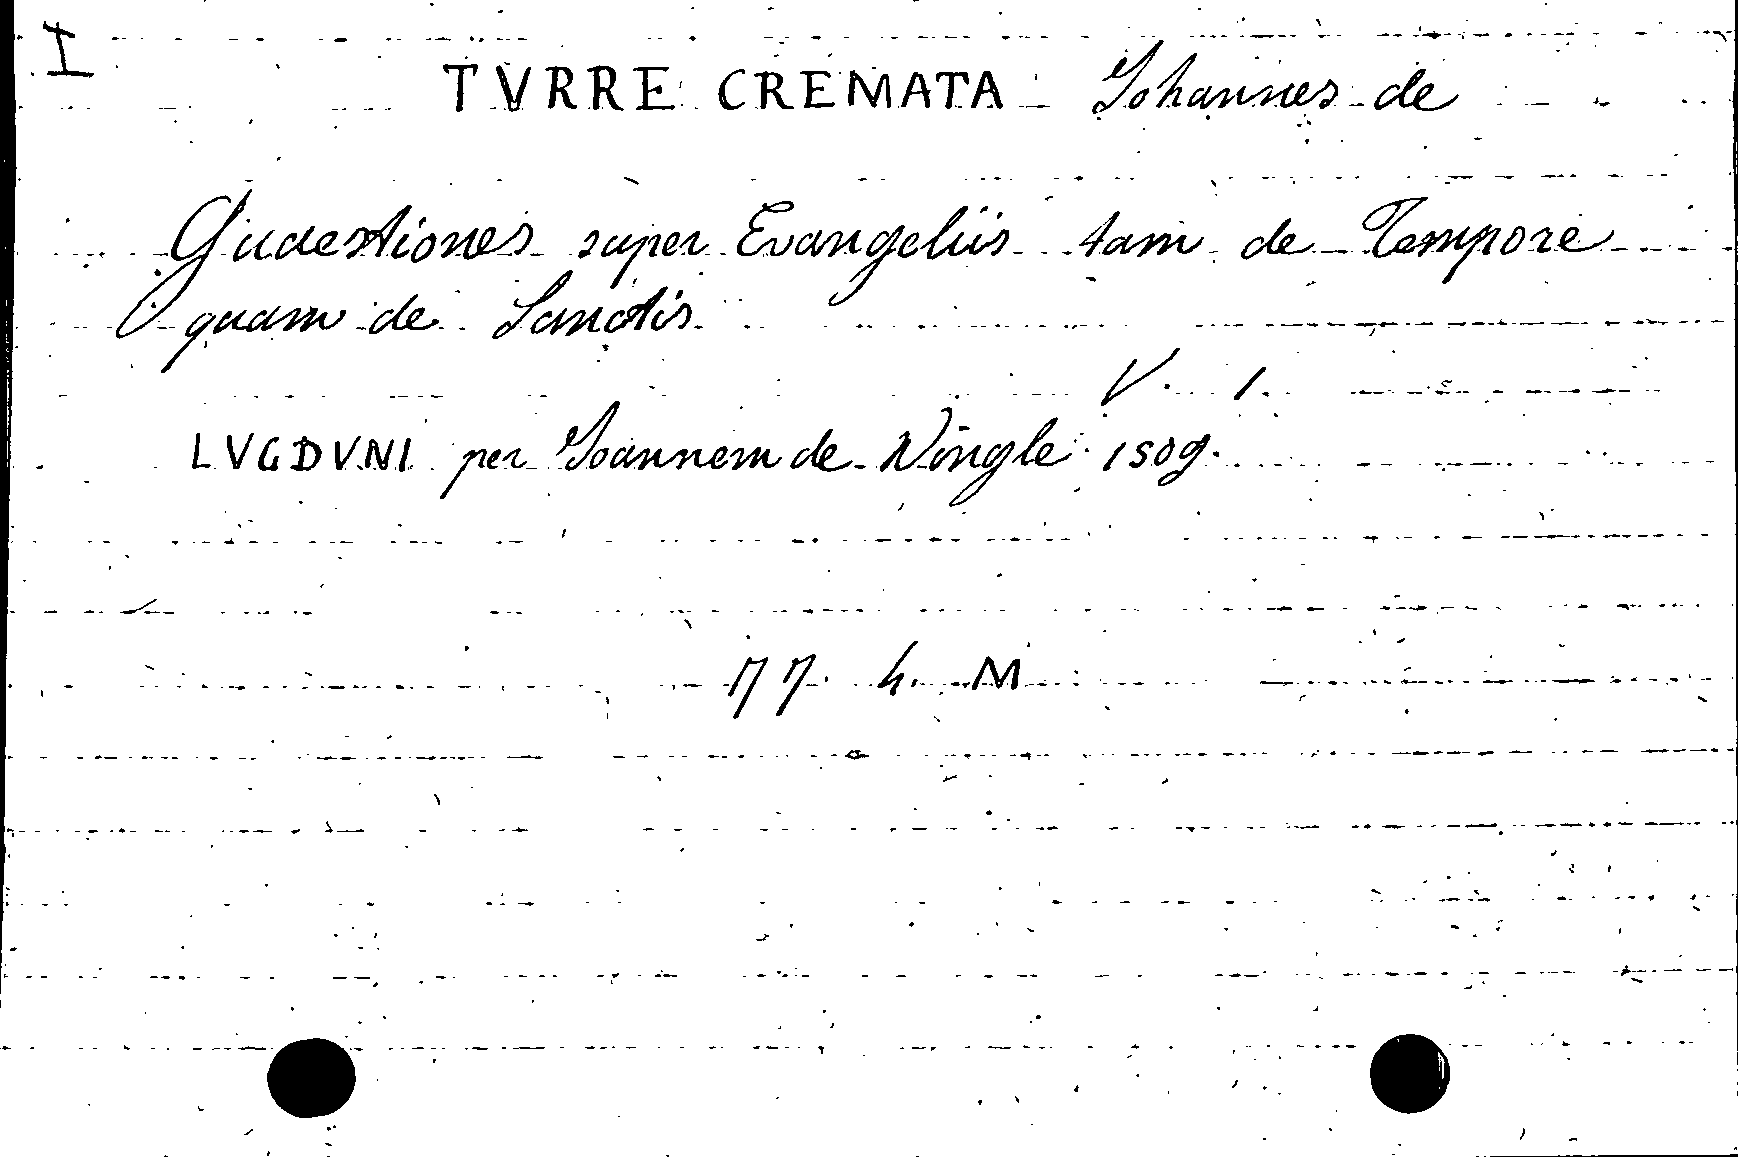 I
TVRRE CREMATA Johannes de
Quaestiones super Evangeliis tam de Tempore
quam de Sanctis
V. 1.
LVGDVNI per Joannem de Vingle 1509.
77. h. M